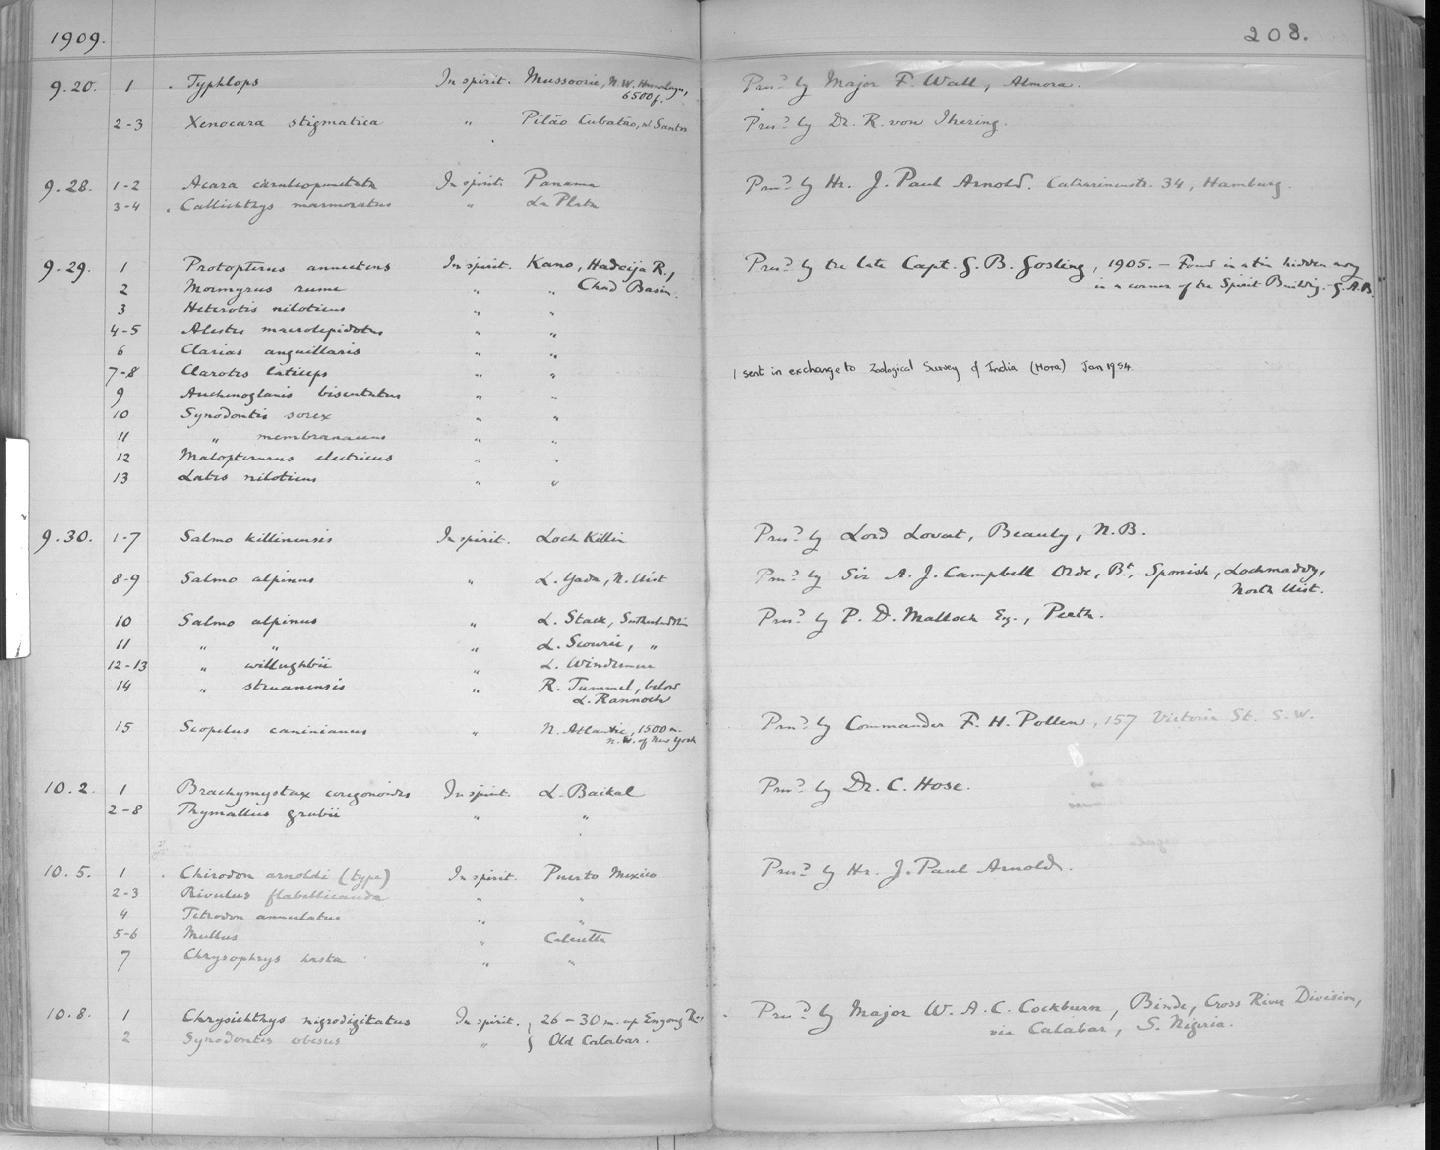 1909.
208.
9.20. 1 Typhlops In spirit. Mussoorie, N.W. Himalaya, 6500 f. Pres.d by Major F. Wall, Almora.
2-3 Xenocara stigmatica " Pilão Cubatão, nr Santos Pres.d by Dr. R. von Ihering.
9.28. 1-2 Acara cæruleopunctata In spirit. Panama Pres.d by Hr. J. Paul Arnold. Catarinenstr. 34, Hamburg.
3-4 Callichthys marmoratus " La Plata
9.29. 1 Protopterus annectens In spirit. Kano, Hadeija R., Pres.d by the late Capt. G. B. Gosling, 1905. – Found in a tin hidden away
2 Mormyrus rume " " Chad Basin. in a corner of the Spirit Building. G.A.B.
3 Heterotis niloticus " "
4-5 Alestes macrolepidotus " "
6 Clarias anguillaris " "
7-8 Clarotes laticeps " " 1 sent in exchange to Zoological Survey of India (Hora) Jan 1954.
9 Auchenoglanis biscutatus " "
10 Synodontis sorex " "
11 " membranaceus " "
12 Malopterurus electricus " "
13 Lates niloticus " "
9.30. 1-7 Salmo killinensis In spirit. Loch Killin Pres.d by Lord Lovat, Beauly, N.B.
8-9 Salmo alpinus " L. , N. Uist Pres.d by Sir A. J. Campbell Orde, Bt, Sponish, Lochmaddy,
North Uist.
10 Salmo alpinus " L. Stack, Sutherlandshire Pres.d by P. D. Malloch Esq., Perth.
11 " " " L. Scourie, "
12-13 " willughbii " L. Windermere
14 " struanensis " R. Tummel, below
L. Rannoch
15 Scopelus caninianus " N. Atlantic, 1500 m. Pres.d by Commander F. H. Pollen, 157 Victoria St. S.W.
n. W. of New York
10.2. 1 Brachymystax coregonoides In spirit. L. Baikal Pres.d by Dr. C. Hose.
2-8 Thymallus grubii " "
10.5. 1 Chirodon arnoldi (type) In spirit. Puerto Mexico Pres.d by Hr. J. Paul Arnold.
2-3 Rivulus flabellicauda " "
4 Tetrodon annulatus " "
5-6 Mullus " Calcutta
7 Chrysophrys hasta " "
10.8. 1 Chrysichthys nigrodigitatus In spirit. 26–30 m. up Enyong R. Pres.d by Major W. A. C. Cockburn, Binde, Cross River Division,
2 Synodontis obesus " Old Calabar. via Calabar, S. Nigeria.